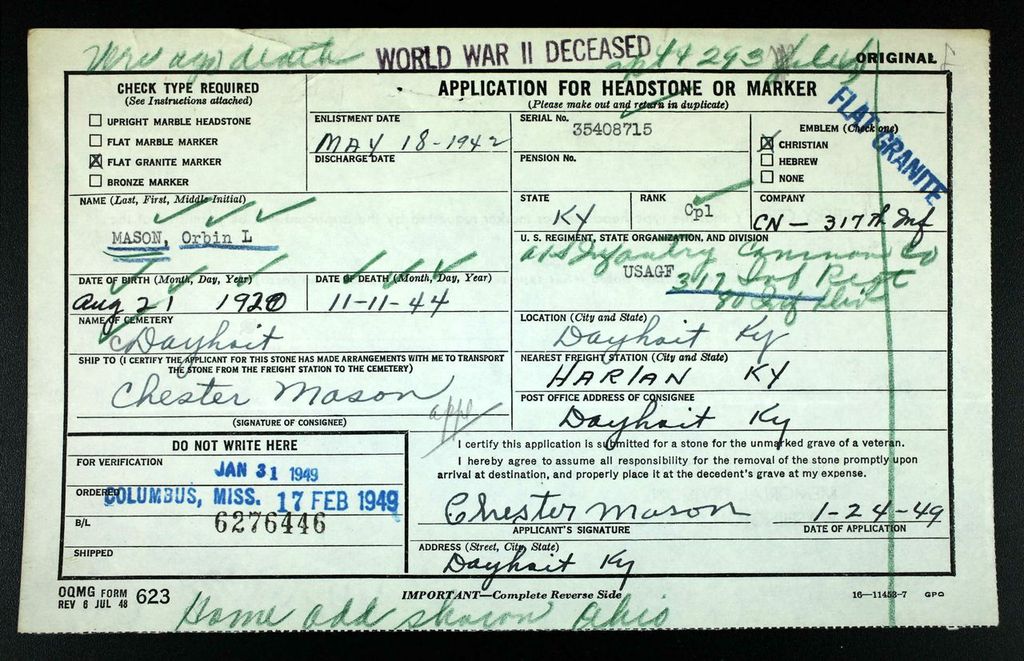 WORLD WAR II DECEASED
ORIGINAL
CHECK TYPE REQUIRED
(See Instructions attached)
UPRIGHT MARBLE HEADSTONE
FLAT MARBLE MARKER
FLAT GRANITE MARKER
BRONZE MARKER
APPLICATION FOR HEADSTONE OR MARKER
(Please make out and return in duplicate)
ENLISTMENT DATE
MAY 18-1942
DISCHARGE DATE
SERIAL No.
35408715
PENSION No.
EMBLEM (Check one)
CHRISTIAN
HEBREW
NONE
FLAT GRANITE
NAME (Last, First, Middle Initial)
MASON, Orbin L
STATE
KY
RANK
Cpl
COMPANY
CN - 317th Inf
U. S. REGIMENT, STATE ORGANIZATION, AND DIVISION
USAGF
317 Inf
DATE OF BIRTH (Month, Day, Year)
Aug 21 1920
DATE OF DEATH (Month, Day, Year)
11-11-44
NAME OF CEMETERY
Dayhoit
LOCATION (City and State)
Dayhoit Ky
SHIP TO (I CERTIFY THE APPLICANT FOR THIS STONE HAS MADE ARRANGEMENTS WITH ME TO TRANSPORT
THE STONE FROM THE FREIGHT STATION TO THE CEMETERY)
Chester Mason
(SIGNATURE OF CONSIGNEE)
appl
NEAREST FREIGHT STATION (City and State)
HARLAN KY
POST OFFICE ADDRESS OF CONSIGNEE
Dayhoit Ky
DO NOT WRITE HERE
FOR VERIFICATION
JAN 31 1949
ORDERED
COLUMBUS, MISS. 17 FEB 1949
B/L
6276446
SHIPPED
I certify this application is submitted for a stone for the unmarked grave of a veteran.
I hereby agree to assume all responsibility for the removal of the stone promptly upon
arrival at destination, and properly place it at the decedent's grave at my expense.
Chester Mason 1-24-49
APPLICANT'S SIGNATURE DATE OF APPLICATION
ADDRESS (Street, City, State)
Dayhoit Ky
OQMG FORM
REV 6 JUL 48 623
IMPORTANT—Complete Reverse Side
16—11453-7 GPO
Home add Sharon Ohio